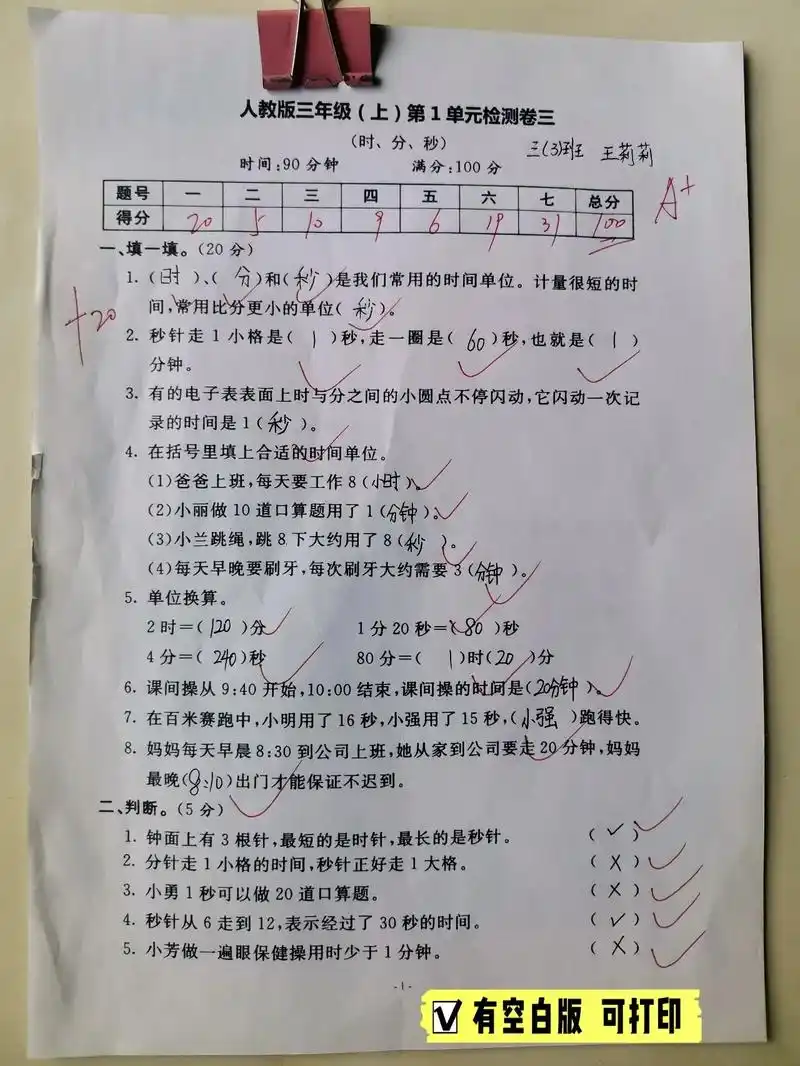 人教版三年级(上)第1单元检测卷三
(时、分、秒)
三(3)班 王莉莉
时间:90分钟 满分:100分
题号 一 二 三 四 五 六 七 总分
得分 20 5 10 9 6 19 31 100
A+
一、填一填。(20分)
+20
1. (时)、(分)和(秒)是我们常用的时间单位。计量很短的时
间,常用比分更小的单位(秒)。
2. 秒针走1小格是(1)秒,走一圈是(60)秒,也就是(1)
分钟。
3. 有的电子表表面上时与分之间的小圆点不停闪动,它闪动一次记
录的时间是1(秒)。
4. 在括号里填上合适的时间单位。
(1)爸爸上班,每天要工作8(小时)。
(2)小丽做10道口算题用了1(分钟)。
(3)小兰跳绳,跳8下大约用了8(秒)。
(4)每天早晚要刷牙,每次刷牙大约需要3(分钟)。
5. 单位换算。
2时=(120)分 1分20秒=(80)秒
4分=(240)秒 80分=(1)时(20)分
6. 课间操从9:40开始,10:00结束,课间操的时间是(20分钟)。
7. 在百米赛跑中,小明用了16秒,小强用了15秒,(小强)跑得快。
8. 妈妈每天早晨8:30到公司上班,她从家到公司要走20分钟,妈妈
最晚(8:10)出门才能保证不迟到。
二、判断。(5分)
1. 钟面上有3根针,最短的是时针,最长的是秒针。 (✓)
2. 分针走1小格的时间,秒针正好走1大格。 (×)
3. 小勇1秒可以做20道口算题。 (×)
4. 秒针从6走到12,表示经过了30秒的时间。 (✓)
5. 小芳做一遍眼保健操用时少于1分钟。 (×)
-1-
有空白版 可打印